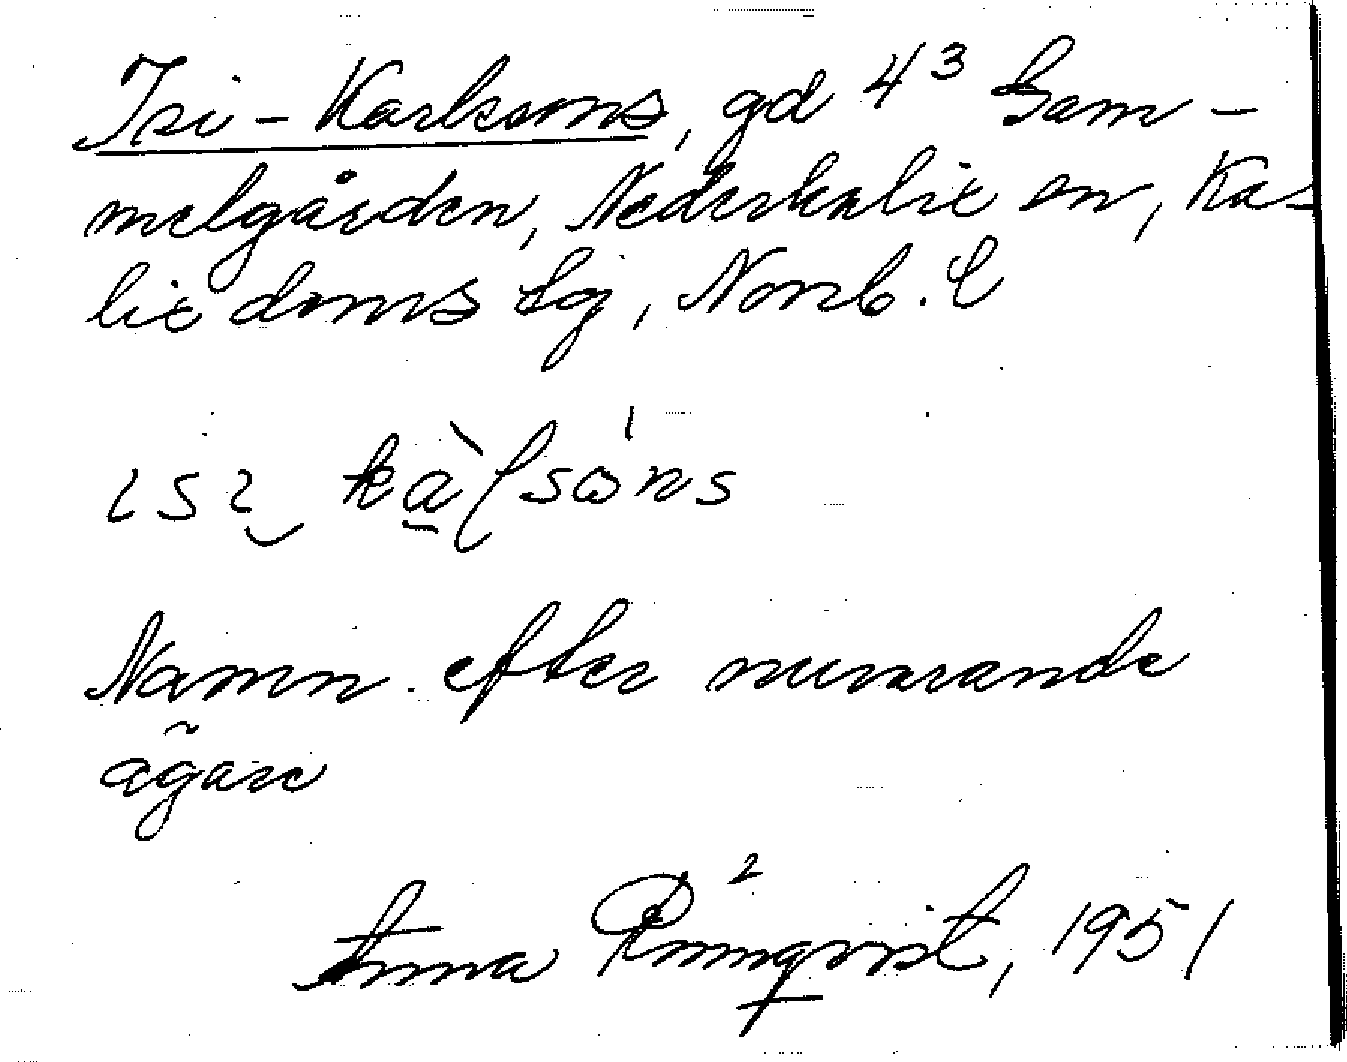 Isi-Karlsons, gd 4³ Gam-
melgården, Nederkalix sn, Ka-
lix doms lg, Norrb. l
ısı kàlsóns
Namn efter nuvarande
ägare
Anna Rönnqvist, 1951